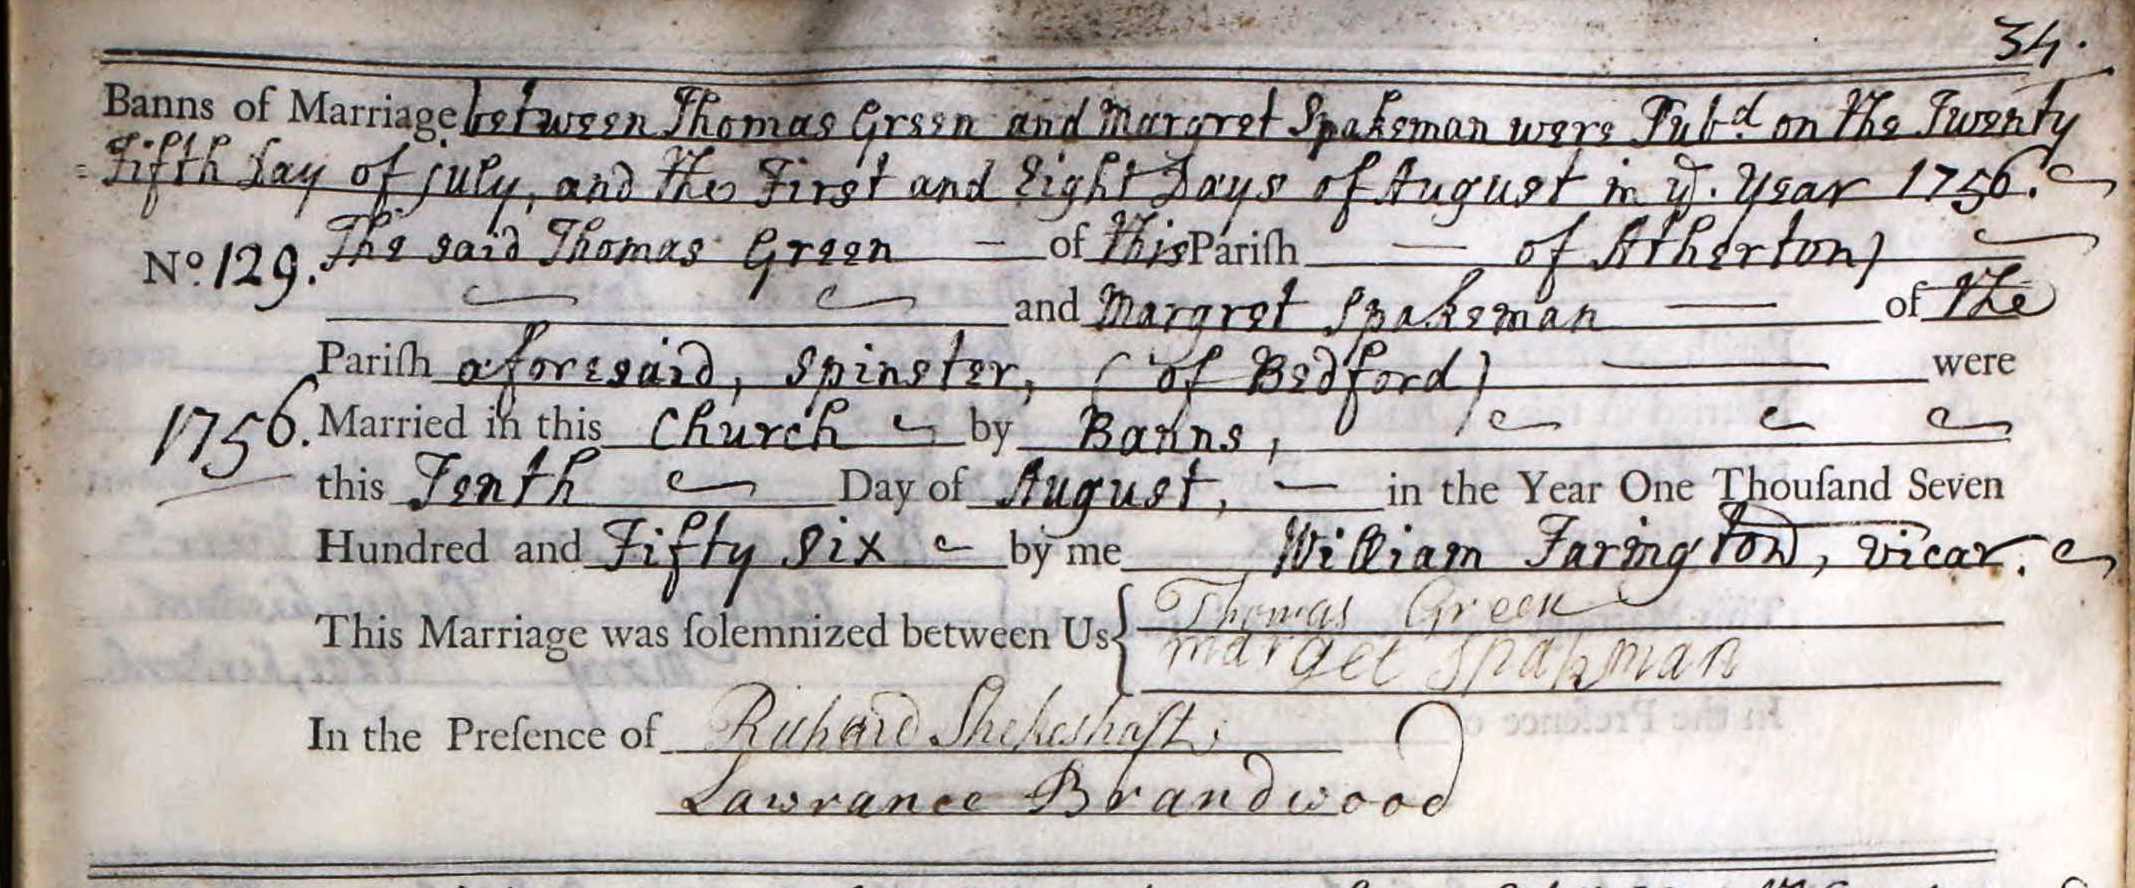 34.
Banns of Marriage between Thomas Green and Margret Spakeman were Pub.d on the Twenty
=Fifth Day of july, and the First and Eight Days of August in ye. Year 1756.
No. 129. The said Thomas Green — of this Pariſh — of Atherton)
and Margret Spakeman — of the
Pariſh aforesaid, Spinster, (of Bedford) — were
1756. Married in this Church by Banns,
this Tenth Day of August, — in the Year One Thouſand Seven
Hundred and Fifty Six by me William Farington, Vicar.
This Marriage was ſolemnized between Us { Thomas Green
marget Spakman
In the Preſence of Richard Shekeshaft,
Lawrance Brandwood